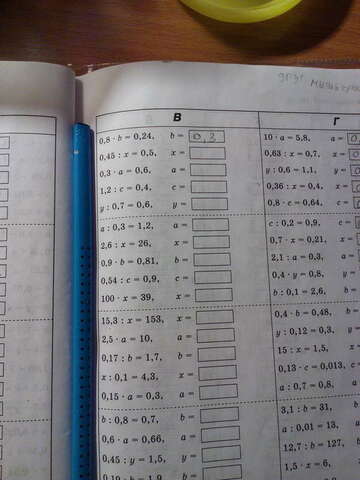 В
0,8 · b = 0,24, b = 0,3
0,45 : x = 0,5, x =
0,3 · a = 0,6, a =
1,2 : c = 0,4, c =
y : 0,7 = 0,6, y =
a : 0,3 = 1,2, a =
2,6 : x = 26, x =
0,9 · b = 0,81, b =
0,54 : c = 0,9, c =
100 · x = 39, x =
15,3 : x = 153, x =
2,5 · a = 10, a =
0,17 : b = 1,7, b =
x : 0,1 = 4,3, x =
0,15 · a = 0,3, a =
b : 0,8 = 0,7, b =
0,6 · a = 0,66, a =
0,45 : y = 1,5, y =
0,19 · b = 1,9, b
Г
10 · a = 5,8, a =
0,63 : x = 0,7, x =
y : 0,6 = 1,1, y =
0,36 : x = 0,4, x =
0,8 · c = 0,64, c =
c : 0,2 = 0,9, c =
0,7 · x = 0,21, x =
2,1 : a = 0,3, a =
0,4 · y = 0,8, y =
b : 0,1 = 2,6, b =
0,4 · b = 0,48, b =
y : 0,12 = 0,3, y =
15 : x = 1,5, x =
0,13 · c = 0,013, c =
a : 0,7 = 0,8, a
3,1 : b = 31, b
a : 0,01 = 13, a
12,7 : b = 127, b
1,5 · x = 6, x